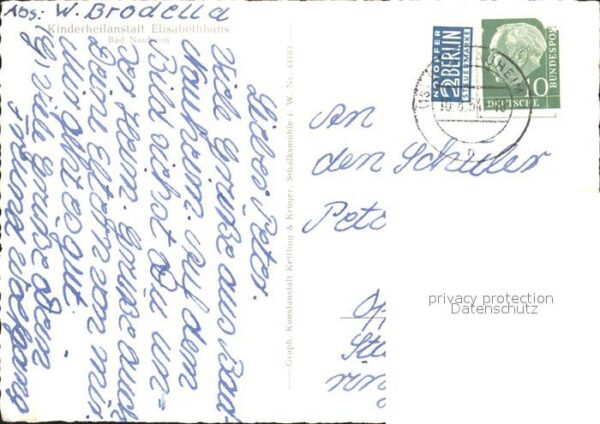 Abs. W. Brodella
Kinderheilanstalt Elisabethhaus
Bad Nauheim
Lieber Peter.
Viele Grüße aus Bad
Nauheim. Auf dem
Bild siehst Du un-
ser Heim. Grüße auch
Deine Eltern von mir.
Mir geht es gut.
Viele Grüße Dein
Freund Wolfgang
Graph. Kunstanstalt Kettling & Krüger, Schalksmühle i. W. Nr.
NOTOPFER
2 BERLIN
STEUERMARKE
DEUTSCHE
BUNDESPOST
10
An
den Schüler
Pet
privacy protection
Datenschutz